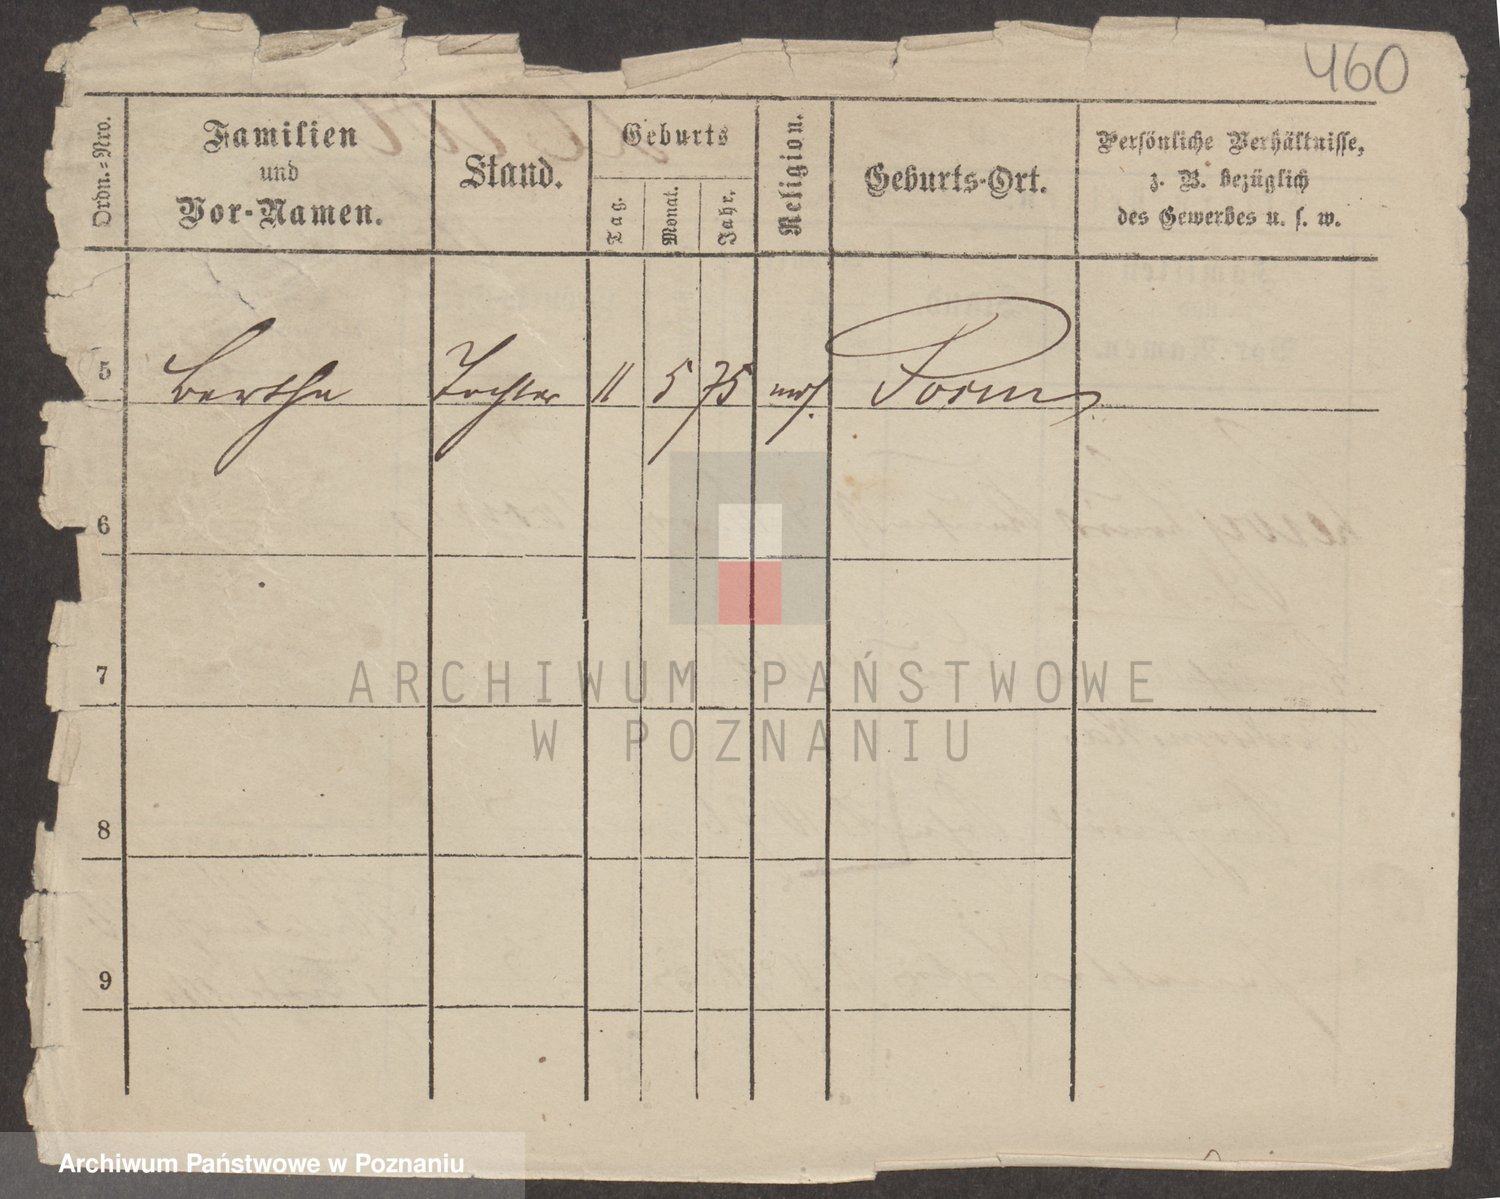 460
Ordn.=Nro.
Familien
und
Vor-Namen.
Stand.
Geburts
Tag.
Monat.
Jahr.
Religion.
Geburts-Ort.
Persönliche Verhältnisse,
z. B. bezüglich
des Gewerbes u. s. w.
5 Bertha Tochter 11 5 75 mos. Posen
6
7
8
9
ARCHIWUM PAŃSTWOWE
W POZNANIU
Archiwum Państwowe w Poznaniu